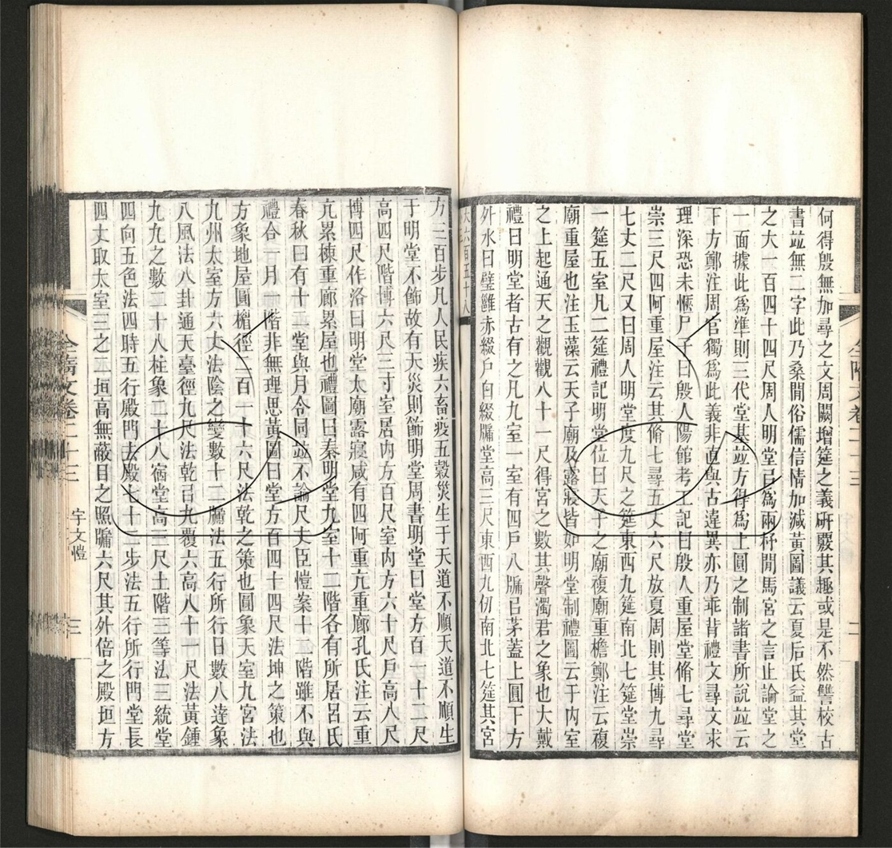 何得殷無加尋之文周闕增筵之義硏覈其趣或是不然讐校古
書竝無二字此乃桑閒俗儒信情加減黃圖議云夏后氏益其堂
之大一百四十四尺周人明堂以爲兩杼閒馬宮之言止論堂之
一面據此爲準則三代堂基竝方得爲上圓之制諸書所說竝云
下方鄭注周官獨爲此義非直與古違異亦乃乖背禮文尋文求
理深恐未愜尸子曰殷人陽館考工記曰殷人重屋堂脩七尋堂
崇三尺四阿重屋注云其脩七尋五丈六尺放夏周則其博九尋
七丈二尺又曰周人明堂度九尺之筵東西九筵南北七筵堂崇
一筵五室凡二筵禮記明堂位曰天子之廟複廟重檐鄭注云複
廟重屋也注玉藻云天子廟及露寢皆如明堂制禮圖云于內室
之上起通天之觀觀八十一尺得宮之數其聲濁君之象也大戴
禮曰明堂者古有之凡九室一室有四戶八牖以茅蓋上圓下方
外水曰璧雝赤綴戶白綴牖堂高三尺東西九仞南北七筵其宮
方三百步凡人民疾六畜疫五穀災生于天道不順天道不順生
于明堂不飾故有天災則飾明堂周書明堂曰堂方百一十二尺
高四尺階博六尺三寸室居內方百尺室內方六十尺戶高八尺
博四尺作洛曰明堂太廟露寢咸有四阿重亢重廊孔氏注云重
亢累棟重廊累屋也禮圖曰秦明堂九室十二階各有所居呂氏
春秋曰有十二堂與月令同竝不論尺丈臣愷案十二階雖不與
禮合一月一階非無理思黃圖曰堂方百四十四尺法坤之策也
方象地屋圓楣徑二百一十六尺法乾之策也圓象天室九宮法
九州太室方六丈法陰之變數十二牖法五行所行日數八達象
八風法八卦通天臺徑九尺法乾以九覆六高八十一尺法黃鍾
九九之數二十八柱象二十八宿堂高三尺土階三等法三統堂
四向五色法四時五行殿門去殿七十二步法五行所行門堂長
四丈取太室三之二垣高無蔽目之照牖六尺其外倍之殿垣方
全隋文卷二十三
宇文愷
三